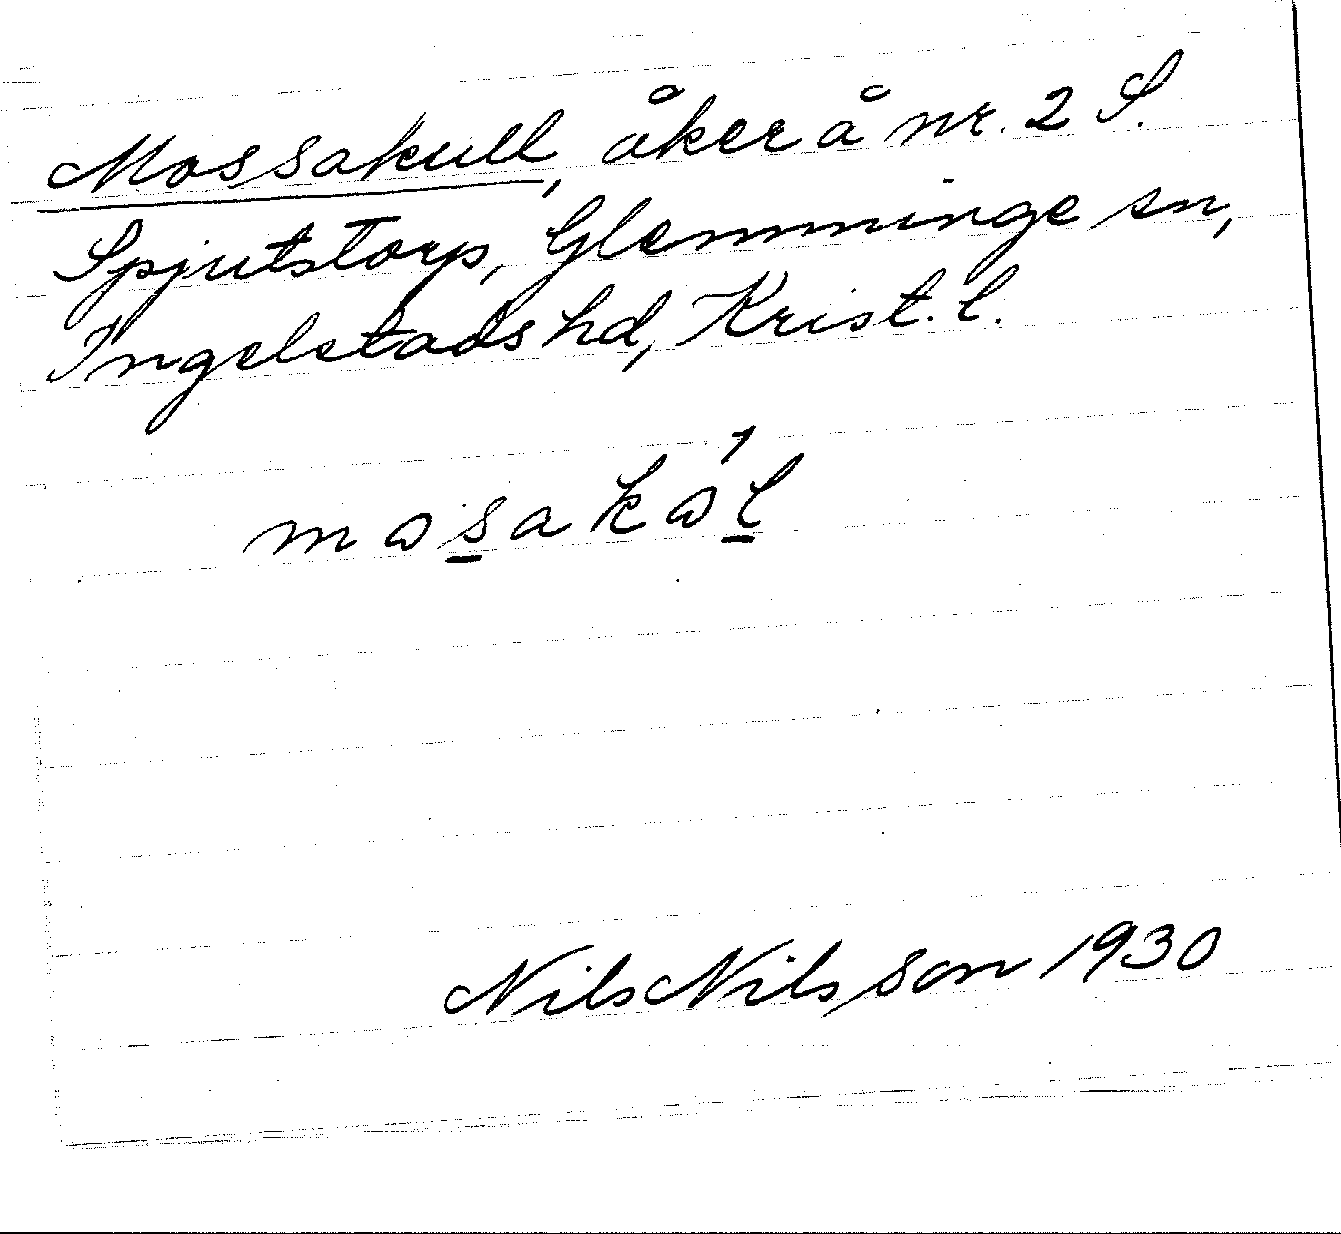 Mossakull, åker å nr. 2 S.
Spjutstorp, Glemminge sn,
Ingelstads hd, Krist. l.
Nils Nilsson 1930